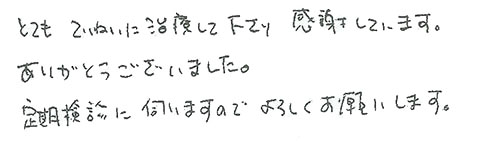 とても ていねいに治療して下さり 感謝しています。
ありがとうございました。
定期検診に 伺いますので よろしくお願いします。